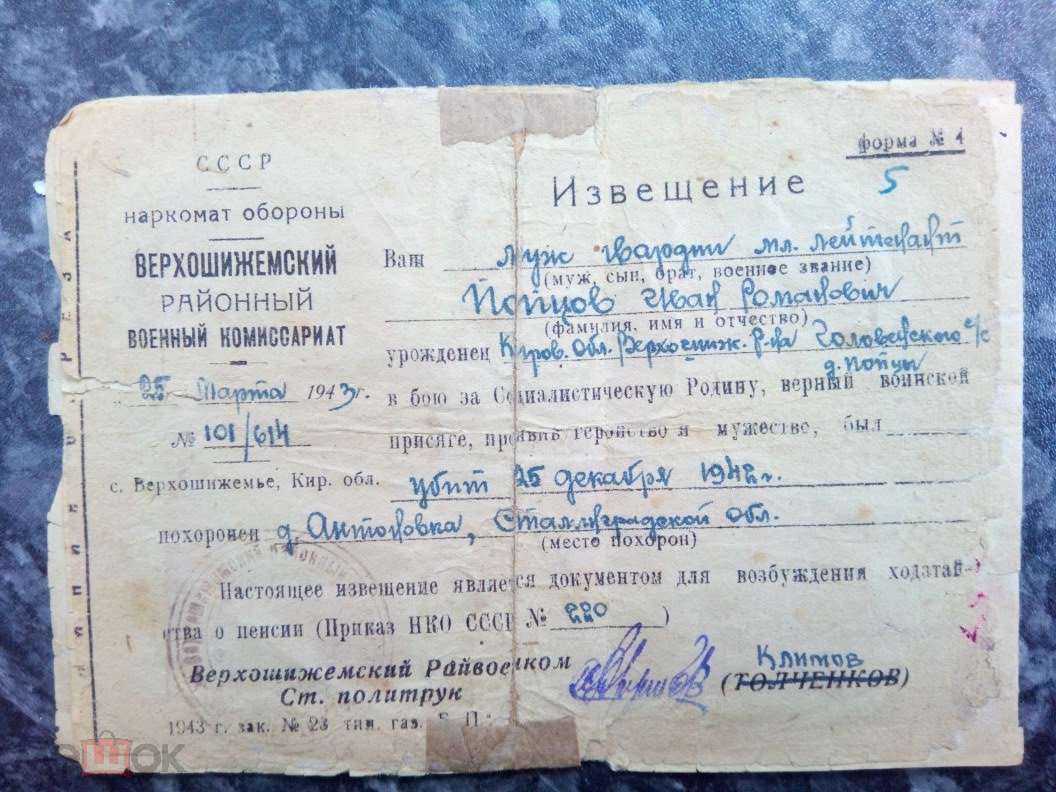 форма № 4
5
СССР
наркомат обороны
ВЕРХОШИЖЕМСКИЙ
РАЙОННЫЙ
ВОЕННЫЙ КОМИССАРИАТ
25 Марта 1943 г.
№ 101/614
с. Верхошижемье, Кир. обл.
Извещение
Ваш муж гвардии мл. лейтенант
(муж, сын, брат, военное звание)
Пойцов Иван Романович
(фамилия, имя и отчество)
уроженец Киров. Обл. Верхошиж. р-на с/с
д. Пойцы
в бою за Социалистическую Родину, верный воинской
присяге, проявив геройство и мужество, был
убит 25 декабря 1942 г.
похоронен д. Антоновка, Сталинградской обл.
(место похорон)
Настоящее извещение является документом для возбуждения ходатай-
ства о пенсии (Приказ НКО СССР № 220)
Верхошижемский Райвоенком
Ст. политрук
Климов
(ТОЛЧЕНКОВ)
1943 г. зак. № 23 тип. газ.